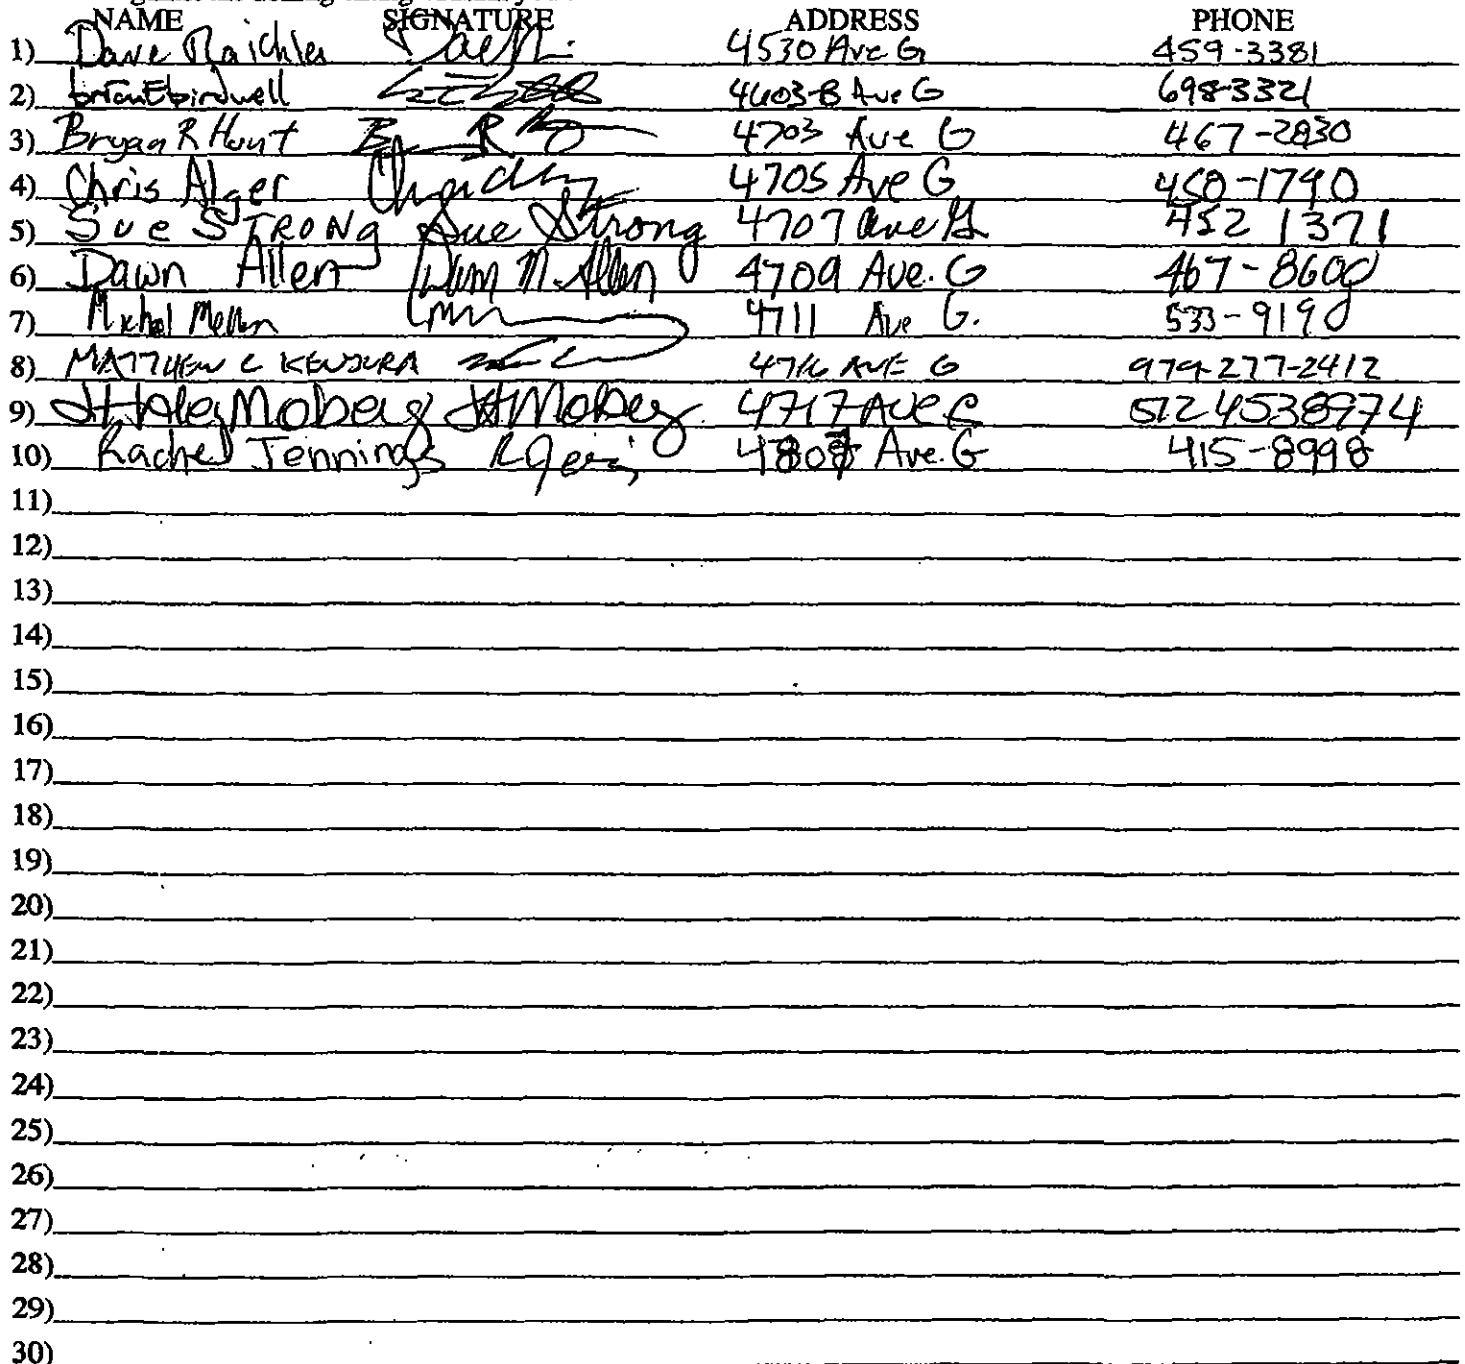 NAME SIGNATURE ADDRESS PHONE
1) Dave Raichler 4530 Ave G 459-3381
2) brian E birdwell 4603-B Ave G 698-3321
3) Bryan R Hunt B R 4703 Ave G 467-2830
4) Chris Alger 4705 Ave G 450-1790
5) Sue STRONG Sue Strong 4707 Ave G 452 1371
6) Dawn Allen Dawn M. Allen 4709 Ave. G 467-8600
7) 4711 Ave G. 533-9190
8) MATTHEW C KENJURA 4716 AVE G 979-277-2412
9) Moberg Moberg 4717 AVE 512 4538974
10) Rachel Jennings Ave. G 415-8998
11)
12)
13)
14)
15)
16)
17)
18)
19)
20)
21)
22)
23)
24)
25)
26)
27)
28)
29)
30)